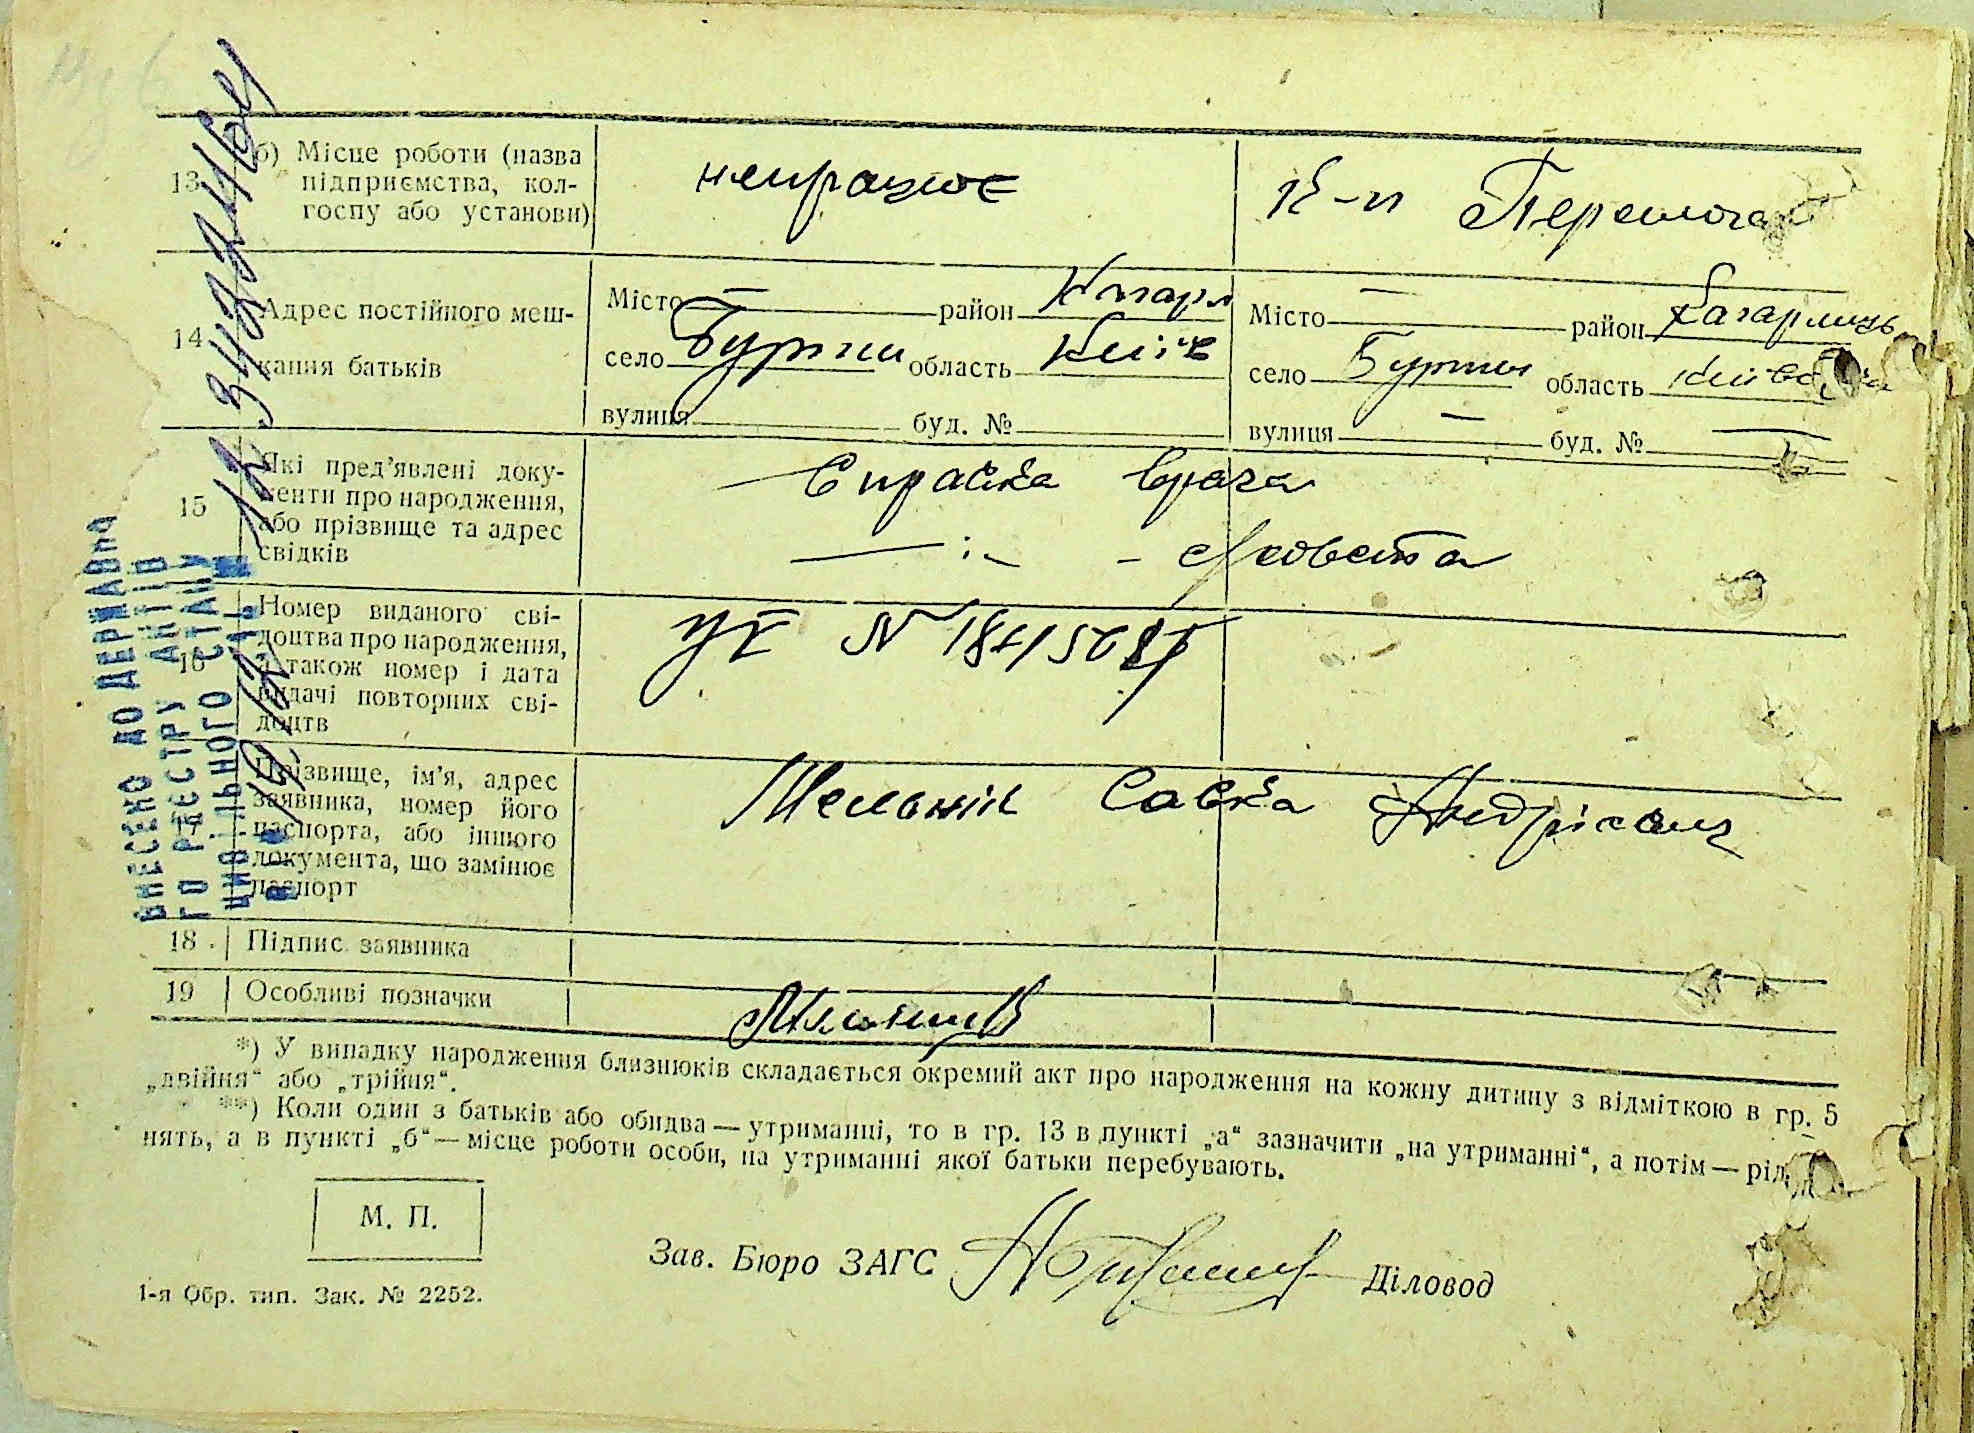 13 б) Місце роботи (назва
підприємства, кол-
госпу або установи)
непрацює
к-п Перемога
14 Адрес постійного меш-
кання батьків
Місто — район Кагарл
село Буртки область Київ
вулиця буд. №
Місто — район Кагарлицьк
село Буртки область Київська
вулиця — буд. № —
15 Які пред’явлені доку-
менти про народження,
або прізвище та адрес
свідків
Справка врача
— : —
16 Номер виданого сві-
доцтва про народження,
а також номер і дата
видачі повторних сві-
доцтв
№
17 Прізвище, ім’я, адрес
заявника, номер його
паспорта, або іншого
документа, що замінює
паспорт
Мельнік Савка
18 Підпис заявника
19 Особливі позначки
*) У випадку народження близнюків складається окремий акт про народження на кожну дитину з відміткою в гр. 5
„двійня“ або „трійня“.
**) Коли один з батьків або обидва — утриманці, то в гр. 13 в пункті „а“ зазначити „на утриманні“, а потім — рід
нять, а в пункті „б“ — місце роботи особи, на утриманні якої батьки перебувають.
М. П.
Зав. Бюро ЗАГС
Діловод
1-я Обр. тип. Зак. № 2252.
ВНЕСЕНО ДО ДЕРЖАВНО
ГО РЕЄСТРУ АКТІВ
ЦИВІЛЬНОГО СТАНУ